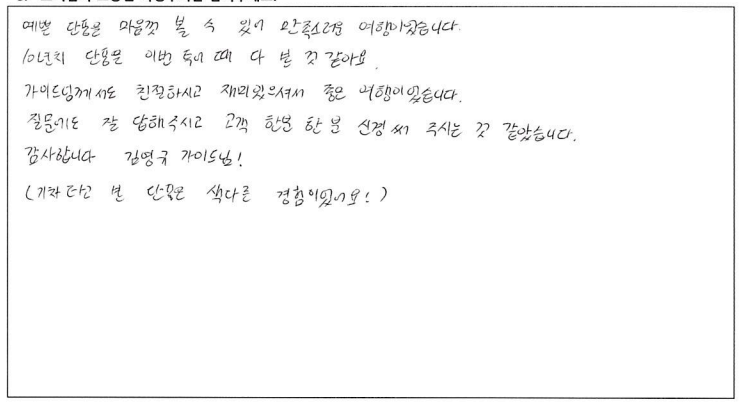 예쁜 단풍을 마음껏 볼 수 있어 만족스러운 여행이었습니다.
10년치 단풍을 이번 투어 때 다 본 것 같아요.
가이드님께서도 친절하시고 재미있으셔서 좋은 여행이었습니다.
질문에도 잘 답해주시고 고객 한분 한 분 신경써 주시는 것 같았습니다.
감사합니다 김영규 가이드님!
(기차타고 본 단풍은 색다른 경험이었어요!)